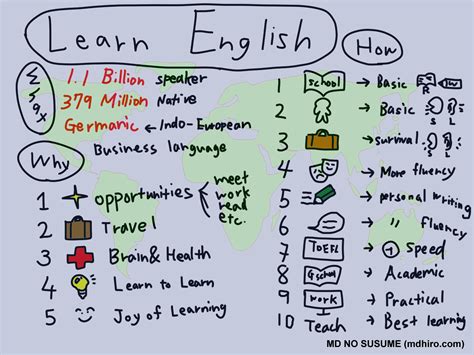 Learn English
How
1.1 Billion speaker
379 Million Native
Germanic ← Indo-European
Business language
Why
1 opportunities meet
work
read
etc.
2 Travel
3 Brain & Health
4 Learn to Learn
5 Joy of Learning
1 school → Basic R W
2 → Basic S L
3 → survival S L
4 → More fluency
5 → personal writing
6 → 〃 fluency
7 TOEFL → + Speed
8 G school → Academic
9 work → Practical
10 Teach → Best learning
MD NO SUSUME (mdhiro.com)